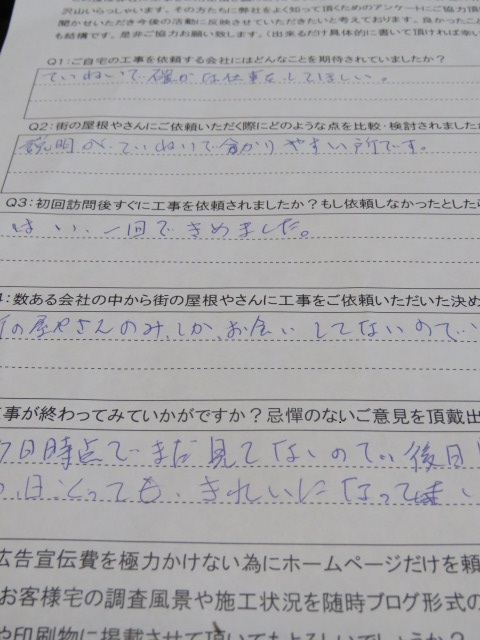 沢山いらっしゃいます。その方たちに弊社をよく知って頂くためのアンケートにご協力頂
聞かせいただき今後の活動に反映させていただきたいと考えております。良かったこと
も結構です。是非ご協力お願い致します。（出来るだけ具体的に書いて頂ければ幸い
Q1：ご自宅の工事を依頼する会社にはどんなことを期待されていましたか？
ていねいで確かな仕事をしてほしい。
Q2：街の屋根やさんにご依頼いただく際にどのような点を比較・検討されました
説明が、ていねいで分かりやすい所です。
Q3：初回訪問後すぐに工事を依頼されましたか？もし依頼しなかったとしたら
はい、一回できめました。
4：数ある会社の中から街の屋根やさんに工事をご依頼いただいた決め
の屋やさんのみ、しか、お会いしてないので
工事が終わってみていかがですか？忌憚のないご意見を頂戴出
日時点でまだ見てないので、後日
日、とっても、きれいになって
広告宣伝費を極力かけない為にホームページだけを頼
お客様宅の調査風景や施工状況を随時ブログ形式の
や印刷物に掲載させて頂いてもよろしいでしょうか？